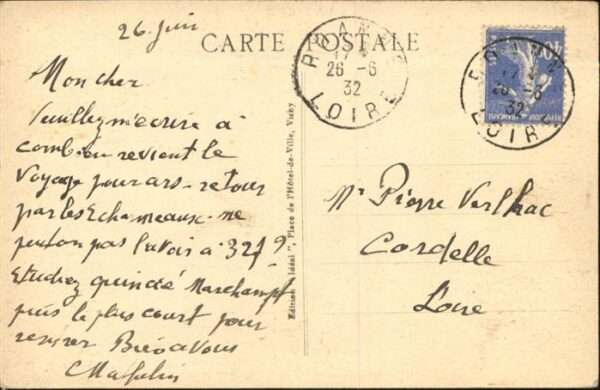 26 Juin
CARTE POSTALE
ROANNE
17
26-6
32
LOIRE
ROANNE
17
26-6
32
LOIRE
Mon cher
Veuillez m'écrire à
combien revient le
voyage pour ars - retour
par les Echarmeaux - ne
peut on pas l'avoir à 32f ?
Etudiez
Marchampt
puis le plus court pour
Bien à vous
Mr Pierre Verlhac
Cordelle
Loire
Edition "Idéal", Place de l'Hôtel-de-Ville, Vichy